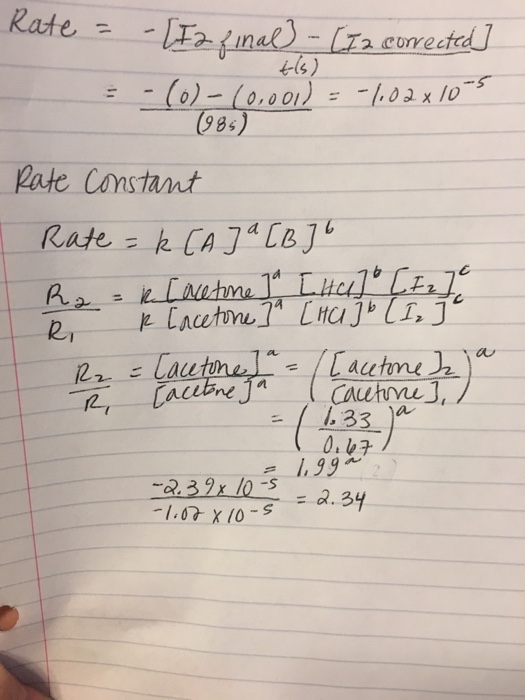 Rate = -[I2 final) - [I2 corrected]
t(s)
= -(0) - (0.001) = -1.02 x 10^-5
(98s)
Rate Constant
Rate = k [A]^a [B]^b
R2 = k [acetone]^a [HCl]^b [I2]^c
R1 k [acetone]^a [HCl]^b [I2]^c
R2 = [acetone]^a = ([acetone]2)^a
R1 [acetone]^a ([acetone]1)
= (1.33)^a
0.67
= 1.99^a
-2.39 x 10^-5 = 2.34
-1.02 x 10^-5